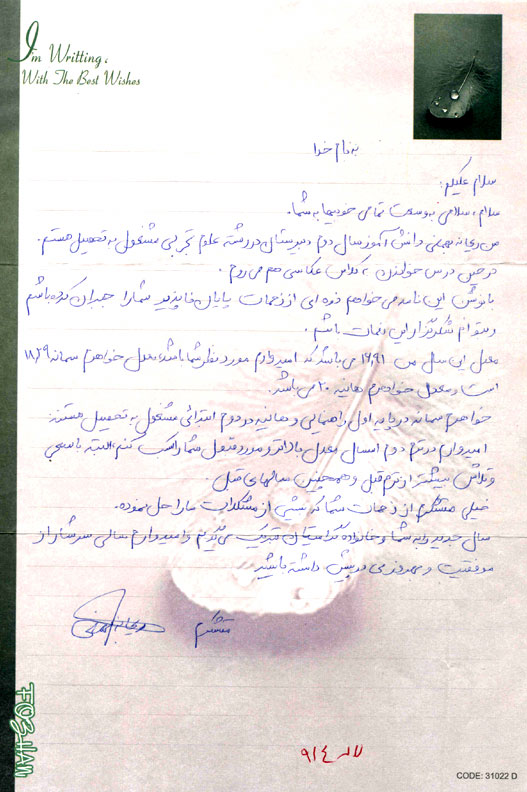 I'm Writting:
With The Best Wishes
به نام خدا
سلام علیکم
سلام، سلامی به وسعت تمامی خوبیها به شما.
من ریحانه بهمنی دانش آموز سال دوم دبیرستان در رشته علوم تجربی مشغول به تحصیل هستم.
در حین درس خواندن، کلاس عکاسی هم می روم.
با نوشتن این نامه می خواهم ذره ای از زحمات پایان ناپذیر شما را جبران کرده باشم
و بتوانم شکرگزار این زحمات باشم.
معدل این سال من ۱۶٫۹۱ می باشد که امیدوارم مورد نظر شما باشد معدل خواهرم سمانه ۱۸٫۲۹
است و معدل خواهرم هانیه ۲۰ می باشد.
خواهرم سمانه در پایه اول راهنمایی و هانیه در دوم ابتدائی مشغول به تحصیل هستند
امیدوارم در ترم دوم امسال معدل بالاتر و مورد قبول شما را کسب کنم البته با سعی
و تلاش بیشتر از ترم قبل و همچنین سالهای قبل.
خیلی متشکرم از زحمات شما که بخشی از مشکلات ما را حل نموده.
سال جدید را به شما و خانواده گرامیتان تبریک می گویم و امیدوارم سالی سرشار از
موفقیت و بهروزی در پیش داشته باشید
متشکرم
CODE: 31022 D